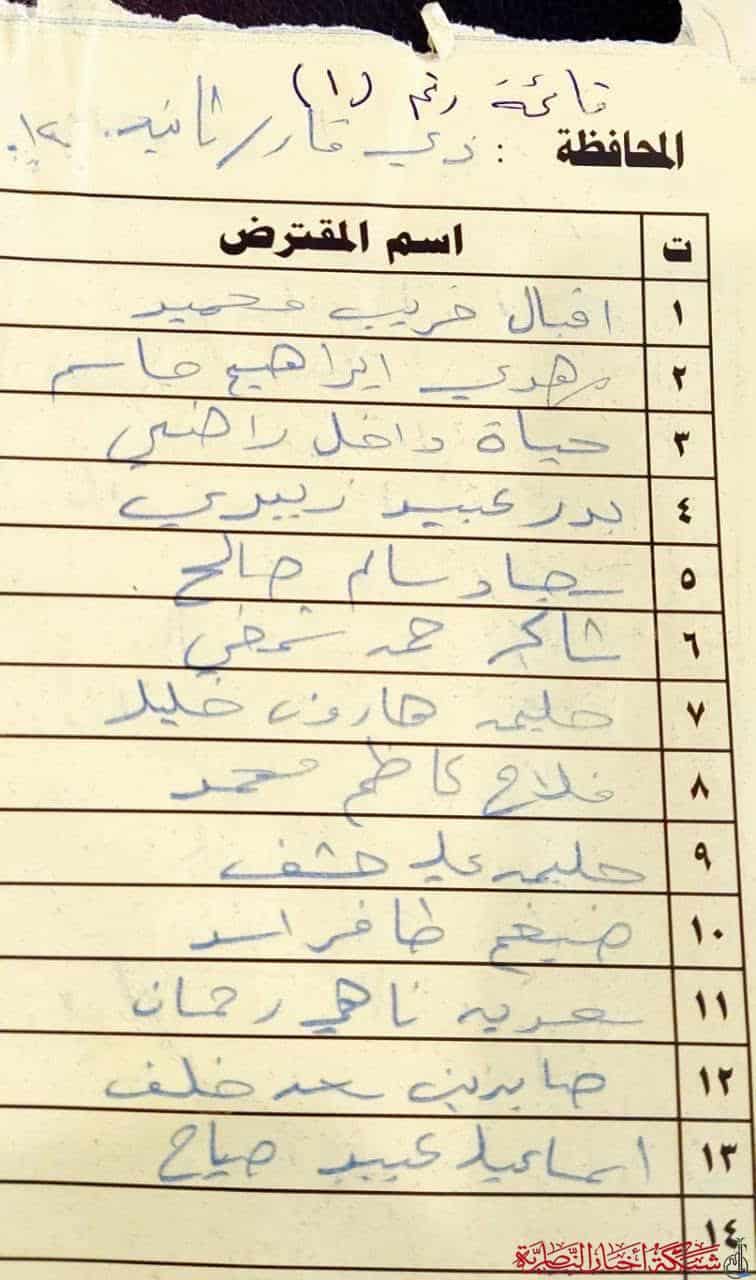 قائمة رقم (١)
المحافظة : ذي قار / ثانية
ت اسم المقترض
١ اقبال غريب محميد
٢ مهدي ابراهيم جاسم
٣ حياة داخل راضي
٤ بدر عبيد زبيدي
٥ سجاد سالم صالح
٦ شاكر حمد شمخي
٧ حليمه هارون خليل
٨ فلاح كاظم محمد
٩ حليمه علي
١٠ ضيغم ظافر اسد
١١ سعديه ناهي رحمان
١٢ صابرين سعد خلف
١٣ اسماعيل عبيد صياح
١٤
شبكة أخبار الناصرية